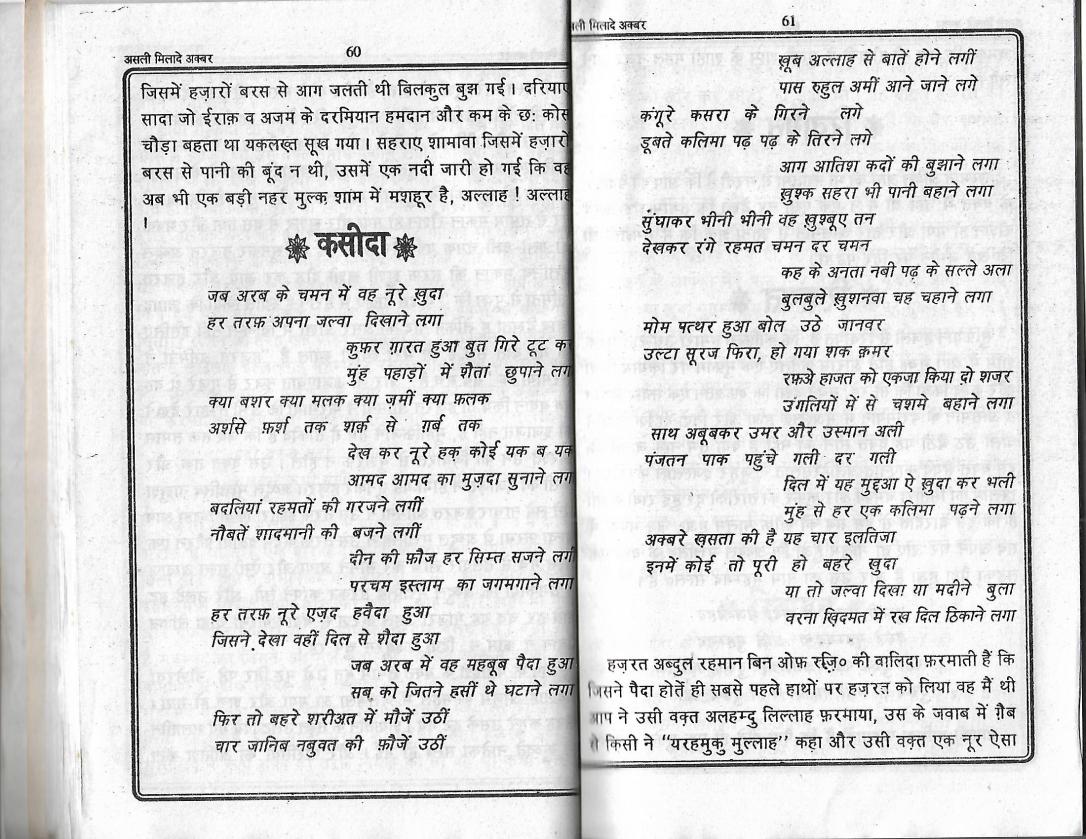 असली मिलादे अक्बर
60
जिसमें हज़ारों बरस से आग जलती थी बिलकुल बुझ गई। दरियाए
सादा जो ईराक़ व अजम के दरमियान हमदान और कम के छः कोस
चौड़ा बहता था यकलख़्त सूख गया। सहराए शामावा जिसमें हज़ारों
बरस से पानी की बूंद न थी, उसमें एक नदी जारी हो गई कि वह
अब भी एक बड़ी नहर मुल्क शाम में मशहूर है, अल्लाह ! अल्लाह
!
कसीदा
जब अरब के चमन में वह नूरे ख़ुदा
हर तरफ़ अपना जल्वा दिखाने लगा
कुफ़र ग़ारत हुआ बुत गिरे टूट कर
मुंह पहाड़ों में शैतां छुपाने लगा
क्या बशर क्या मलक क्या ज़मीं क्या फ़लक
अर्शसे फ़र्श तक शर्क़ से ग़र्ब तक
देख कर नूरे हक़ कोई यक ब यक
आमद आमद का मुज़दा सुनाने लगा
बदलियां रहमतों की गरजने लगीं
नौबतें शादमानी की बजने लगीं
दीन की फ़ौज हर सिम्त सजने लगी
परचम इस्लाम का जगमगाने लगा
हर तरफ़ नूरे एज़द हवैदा हुआ
जिसने देखा वहीं दिल से शैदा हुआ
जब अरब में वह महबूब पैदा हुआ
सब को जितने हसीं थे घटाने लगा
फिर तो बहरे शरीअत में मौजें उठीं
चार जानिब नबुवत की फ़ौजें उठीं
ली मिलादे अक्बर
61
ख़ूब अल्लाह से बातें होने लगीं
पास रुहुल अमीं आने जाने लगे
कंगूरे कसरा के गिरने लगे
डूबते कलिमा पढ़ पढ़ के तिरने लगे
आग आतिश कदों की बुझाने लगा
ख़ुश्क सहरा भी पानी बहाने लगा
सुंघाकर भीनी भीनी वह ख़ुश्बूए तन
देखकर रंगे रहमत चमन दर चमन
कह के अनता नबी पढ़ के सल्ले अला
बुलबुले ख़ुशनवा चह चहाने लगा
मोम पत्थर हुआ बोल उठे जानवर
उल्टा सूरज फिरा, हो गया शक क़मर
रफ़अे हाजत को एकजा किया दो शजर
उंगलियों में से चशमे बहाने लगा
साथ अबूबकर उमर और उस्मान अली
पंजतन पाक पहुंचे गली दर गली
दिल में यह मुद्दआ ऐ ख़ुदा कर भली
मुंह से हर एक कलिमा पढ़ने लगा
अक्बरे ख़सता की है यह चार इलतिजा
इनमें कोई तो पूरी हो बहरे खुदा
या तो जल्वा दिखा या मदीने बुला
वरना ख़िदमत में रख दिल ठिकाने लगा
हज़रत अब्दुल रहमान बिन ओफ़ रज़ि० की वालिदा फ़रमाती हैं कि
जिसने पैदा होतें ही सबसे पहले हाथों पर हज़रत को लिया वह मैं थी
आप ने उसी वक़्त अलहम्दु लिल्लाह फ़रमाया, उस के जवाब में ग़ैब
से किसी ने “यरहमुकु मुल्लाह” कहा और उसी वक़्त एक नूर ऐसा